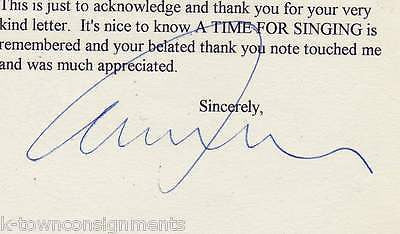 This is just to acknowledge and thank you for your very
kind letter. It's nice to know A TIME FOR SINGING is
remembered and your belated thank you note touched me
and was much appreciated.
Sincerely,
k-townconsignments